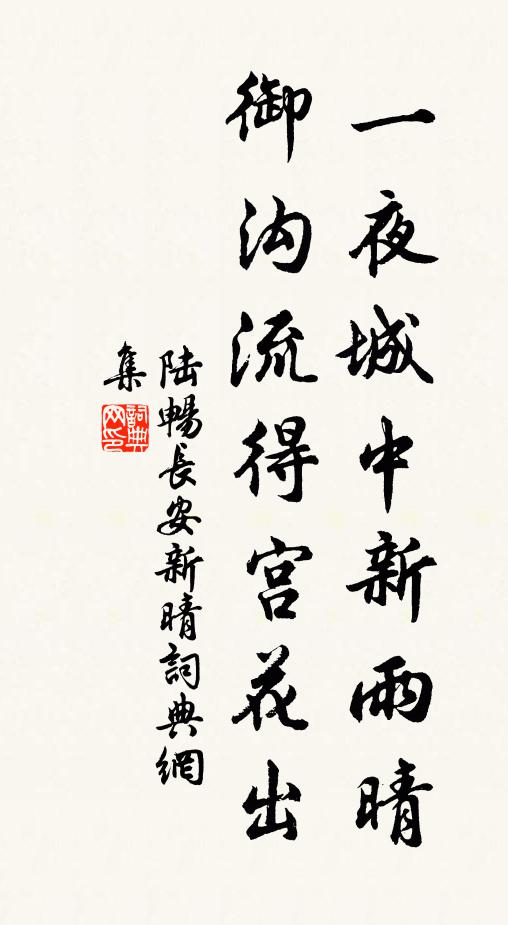 一夜城中新雨晴
御沟流得宫花出
陸暢長安新晴詞典網
集
詞典
网印